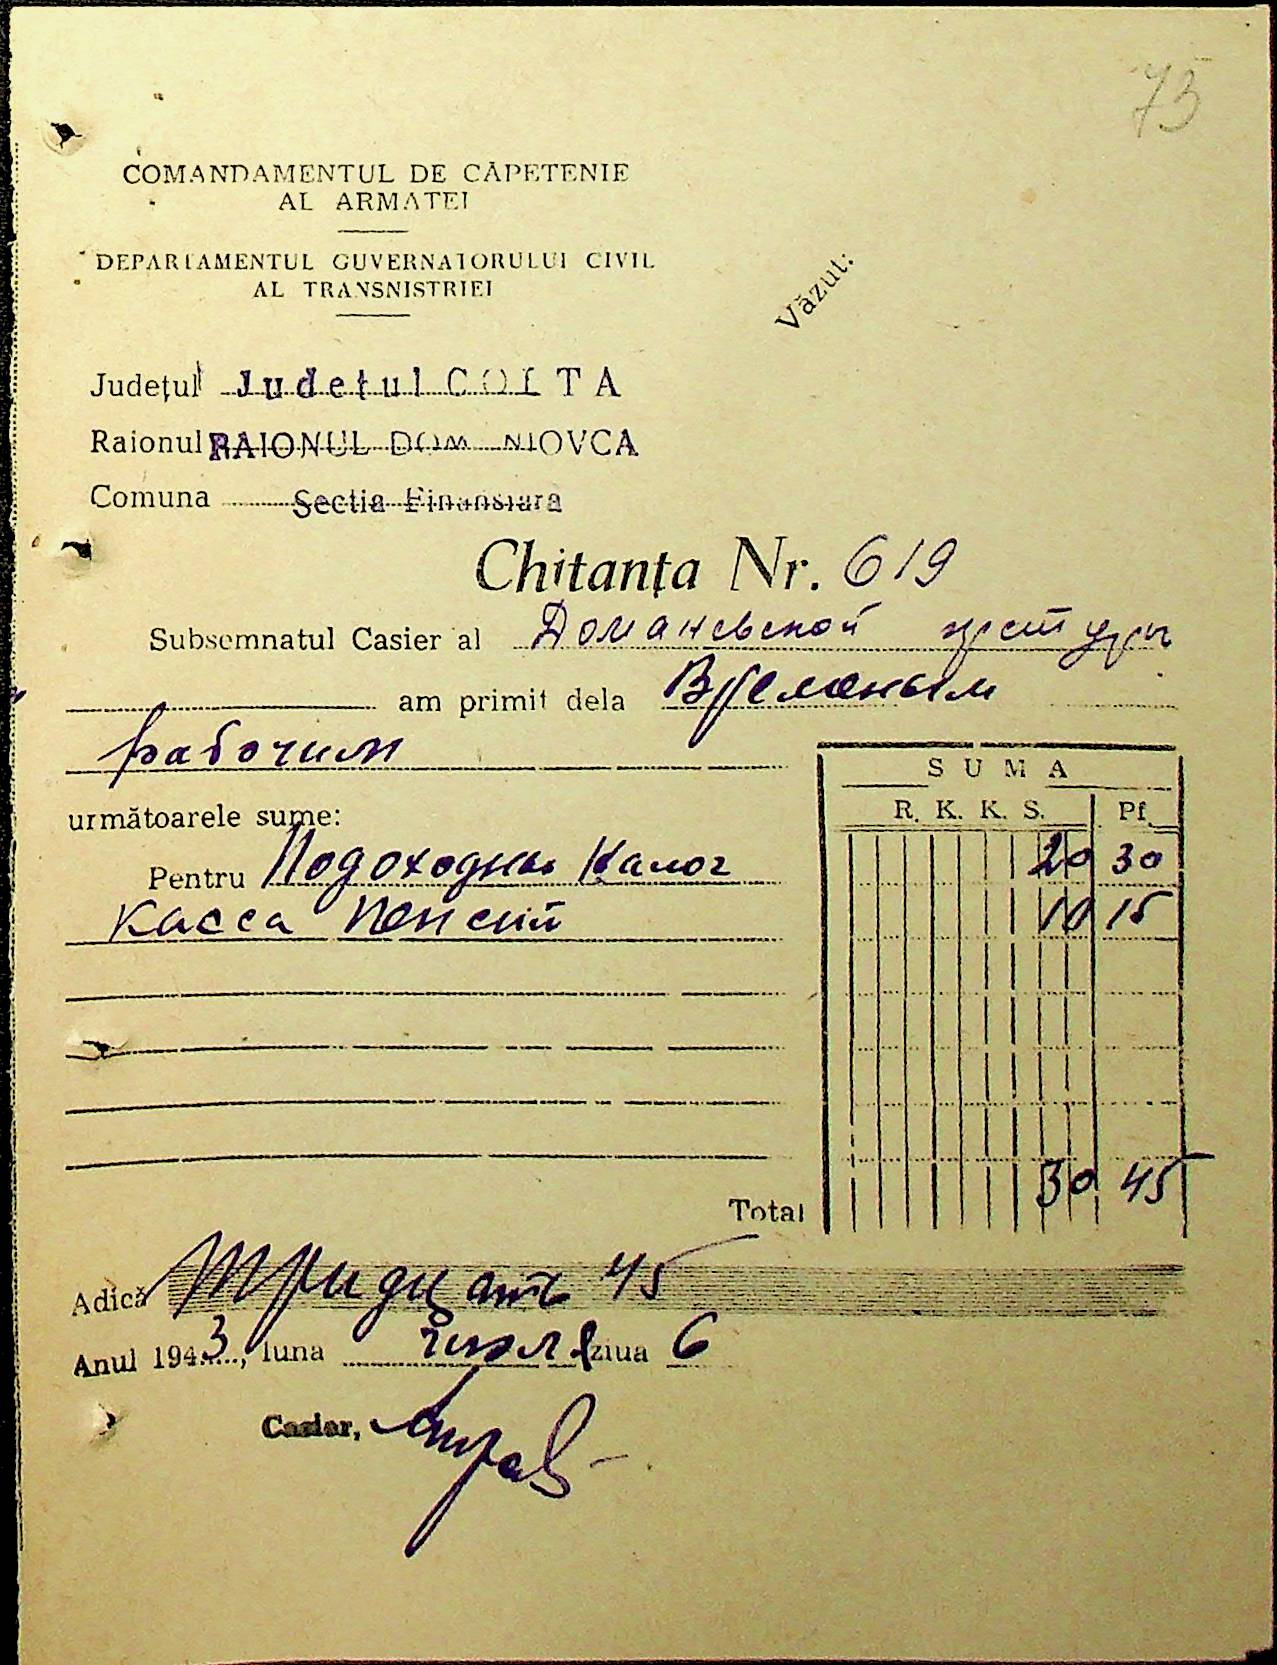 73
COMANDAMENTUL DE CĂPETENIE
AL ARMATEI
DEPARTAMENTUL GUVERNATORULUI CIVIL
AL TRANSNISTRIEI
Văzut:
Județul Judetul GOLTA
Raionul RAIONUL DOMANIOVCA
Comuna Sectia Finansiara
Chitanța Nr. 619
Subsemnatul Casier al Доманевской претуры
am primit dela Временным
рабочим
SUMA
următoarele sume:
R. K. K. S. Pf.
Pentru Подоходны налог 20 30
Касса пенсий 10 15
Total 30 45
Adică Тридцать 45
Anul 1943, luna июля ziua 6
Casier,